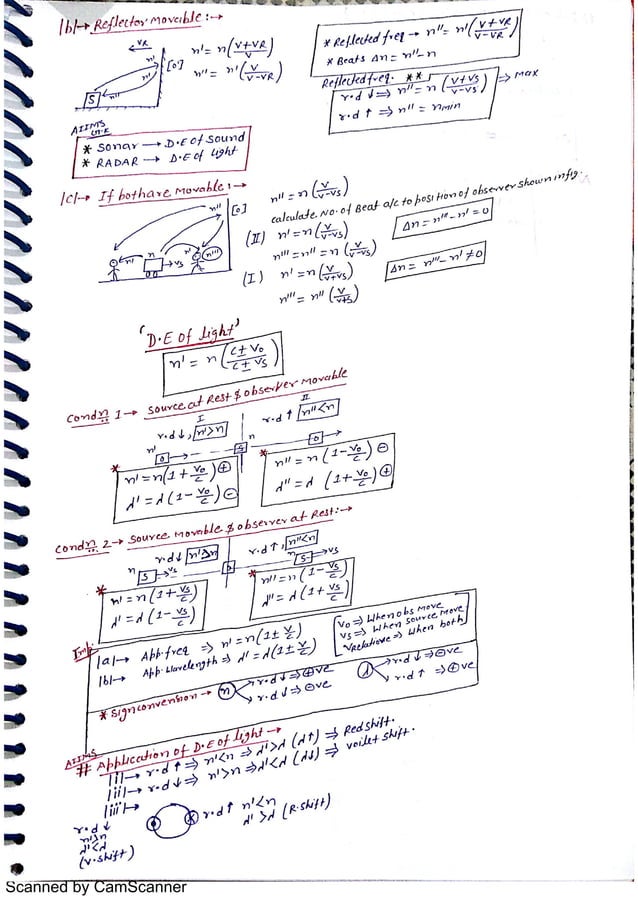 |b|→ Reflector movable :→
VR
n'
[O']
n''
S
n' = n(V+VR/V)
n'' = n'(V/V-VR)
* Reflected freq → n'' = n'(V+VR/V-VR)
* Beats Δn = n''-n
Reflected freq. **
r.d ↓ ⇒ n'' = n (V+VS/V-VS) ⇒ max
r.d ↑ ⇒ n'' = nmin
AIIMS
* Sonar → D.E of Sound
* RADAR → D.E of light
|c|→ If both are movable :→
n''
[O]
n'
n
→VS
n'
n'''
n'' = n (V/V-VS)
calculate No. of Beat a/c to position of observer shown in fig.
(II) n' = n(V/V-VS)
n''' = n'' = n (V/V-VS)
Δn = n'''-n' = 0
(I) n' = n(V/V+VS)
n''' = n'' (V/V+S)
Δn = n'''-n' ≠ 0
'D.E of light'
n' = n (C ± VO/C ± VS)
Condn 1 → Source at Rest & observer movable
I
r.d ↓, n'>n
II
r.d ↑ n''<n
n'
O →
S
n
O →
* n' = n(1 + VO/C) ⊕
λ' = λ (1 - VO/C) ⊖
* n'' = n (1 - VO/C) ⊖
λ'' = λ (1 + VO/C) ⊕
Condn 2 → Source Movable & observer at Rest :→
r.d ↓ n'Δn
r.d ↑, n''<n
n
S → VS
S → VS
* n' = n (1 + VS/C)
λ' = λ (1 - VS/C)
* n'' = n (1 - VS/C)
λ'' = λ (1 + VS/C)
Imp
|a|→ App. freq ⇒ n' = n(1 ± V/C)
|b|→ App. wavelength ⇒ λ' = λ(1 ± V/C)
VO ⇒ When obs move
VS ⇒ When source move
Vrelative ⇒ When both
* Sign convension → n
r.d ↓ ⇒ ⊕ve
r.d ↓ ⇒ ⊖ve
λ
r.d ↓ ⇒ ⊖ve
r.d ↑ ⇒ ⊕ve
AIIMS
# Application of D.E of light →
|i|→ r.d ↑ ⇒ n'<n ⇒ λ'>λ (λ↑) ⇒ Red shift.
|ii|→ r.d ↓ ⇒ n'>n ⇒ λ'<λ (λ↓) ⇒ voilet shift.
|iii|→
r.d ↑ n'<n
λ'>λ (R.shift)
r.d ↓
n'>n
λ'<λ
(V.shift)
Scanned by CamScanner